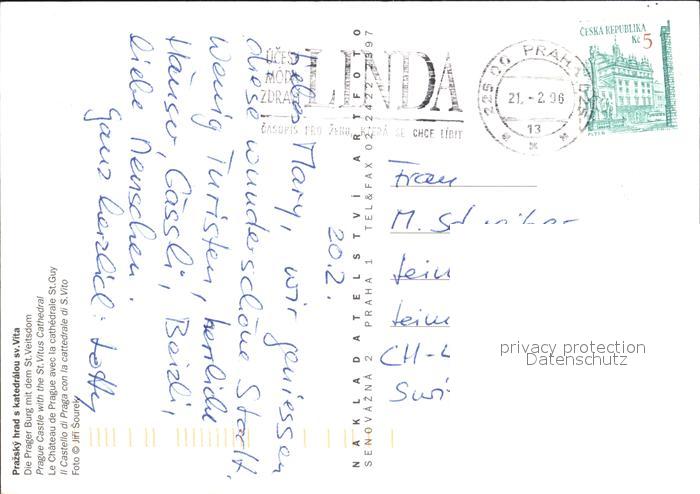 Pražský hrad s katedrálou sv. Víta
Die Prager Burg mit dem St.Veitsdom
Prague Castle with the St.Vitus Cathedral
Le Château de Prague avec la cathédrale St.Guy
Il Castello di Praga con la cattedrale di S.Vito
Foto © Jiří Šourek
20.2.
Liebes Mary, wir geniessen
diese wunderschöne Stadt.
Wenig Turisten, herrliche
Häuser, Gässli, Beizli,
liebe Menschen.
Ganz herzlich:
NAKLADATELSTVÍ ARTFOTO
SENOVÁŽNÁ 2 PRAHA 1 TEL&FAX 02 2422 7397
ÚČESY
MÓDA
ZDRAVÍ
LINDA
ČASOPIS PRO ŽENU, KTERÁ SE CHCE LÍBIT
225 00 PRAHA
21.-2.96
13
ČESKÁ REPUBLIKA
Kč 5
PLZEŇ
Frau
M.
CH-
privacy protection
Datenschutz